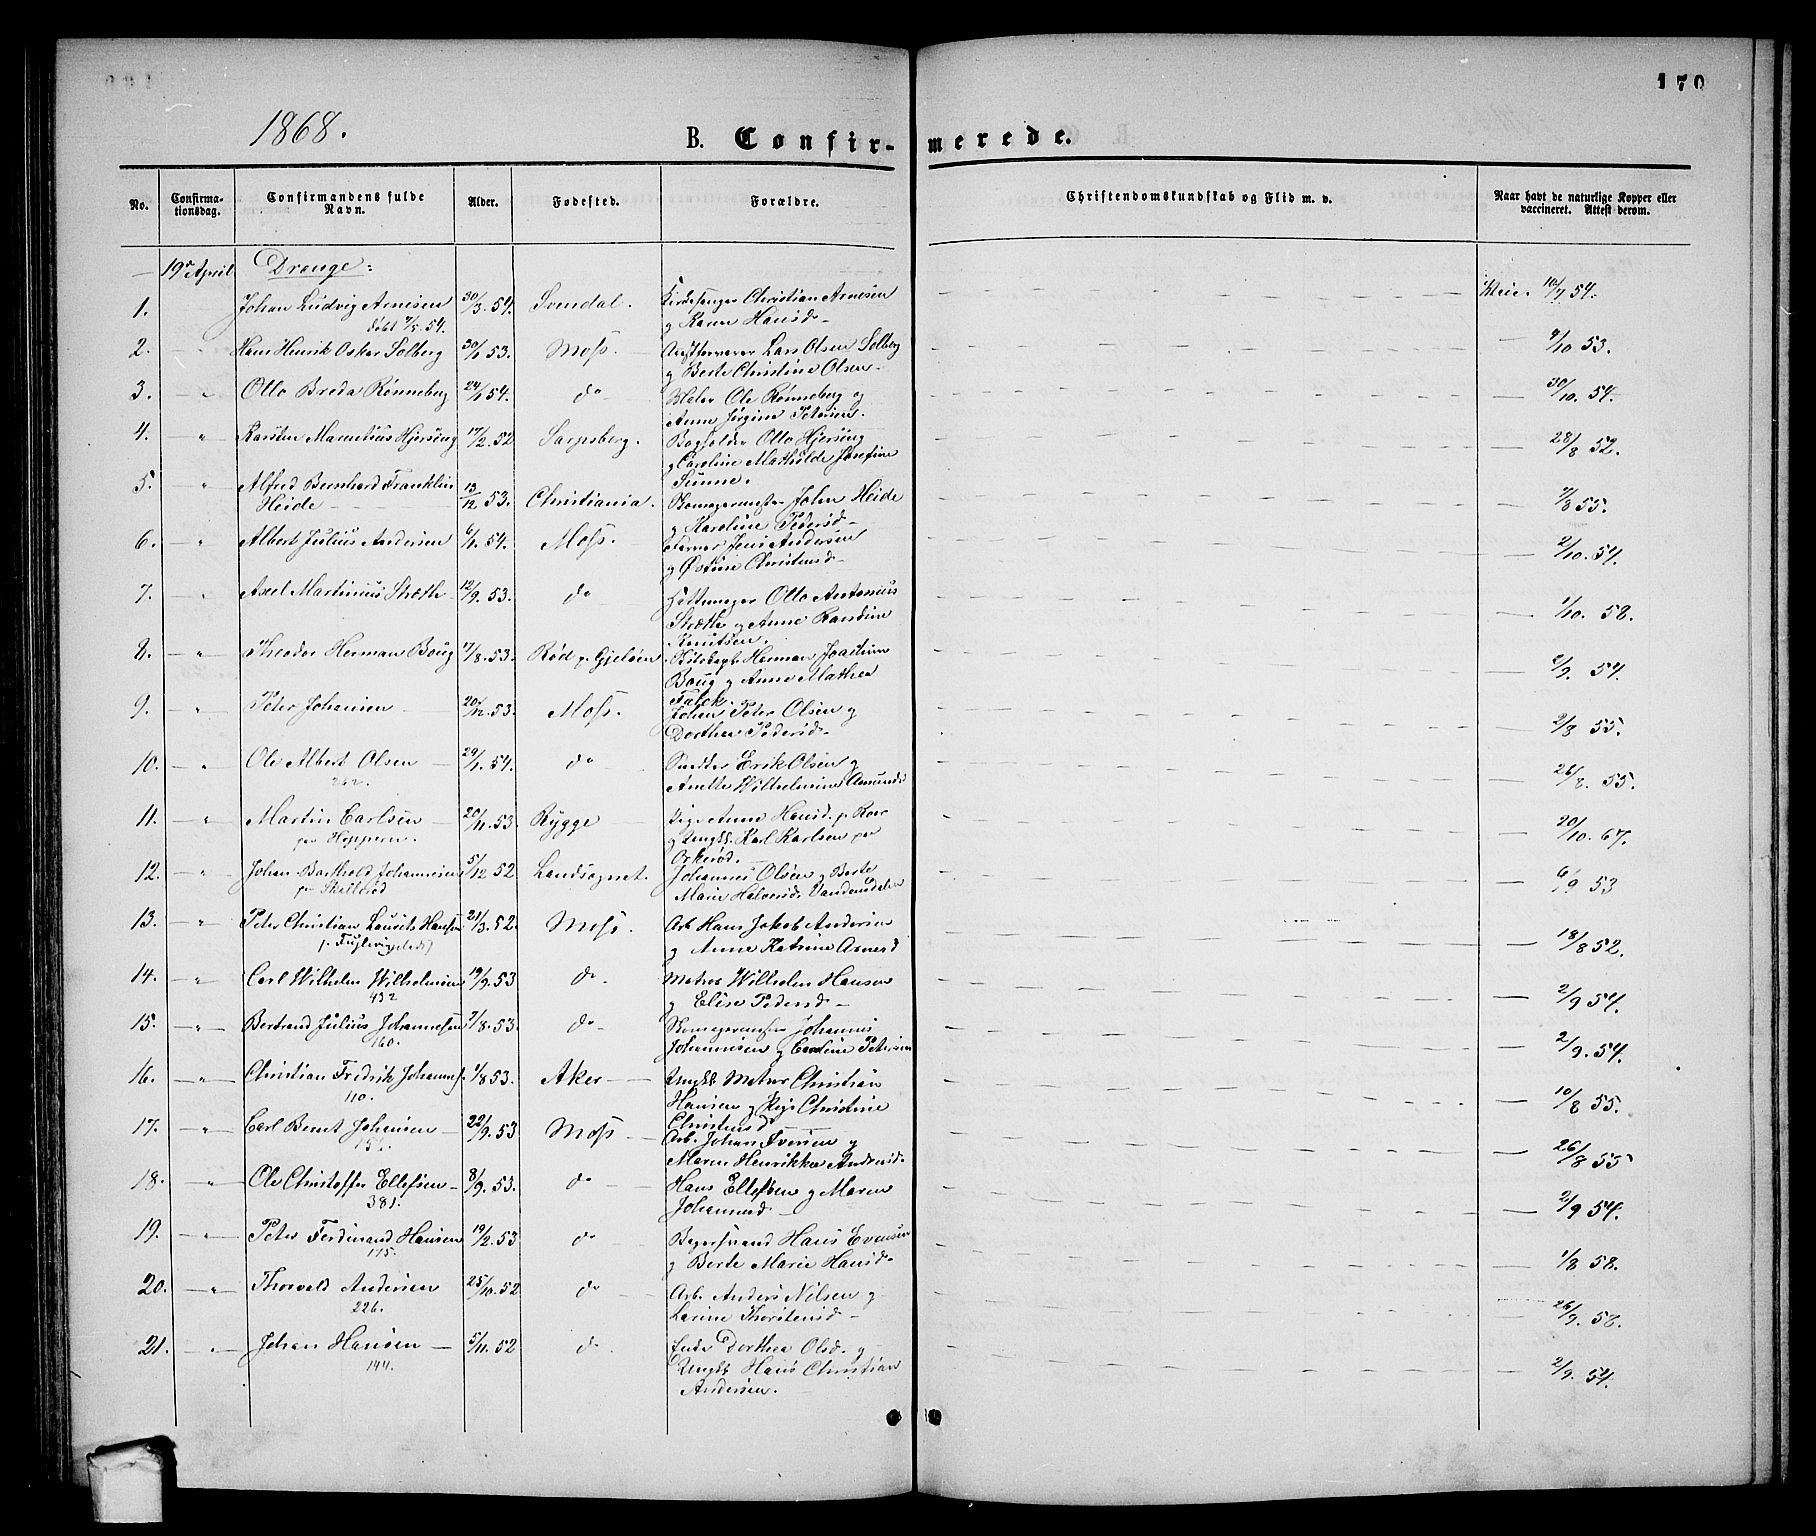 170
1868.
B. Confirmerede.
No. Confirmationsdag. Confirmandens fulde Navn. Alder. Fødested. Forældre. Christendomskundskab og Flid m. v. Naar havt de naturlige Kopper eller vaccineret. Attest derom.
19de April Drenge:
1. Johan Ludvig Arnesen 30/3. 54. Svendal. Kirkesanger Christian Arnesen 10/7 54.
døbt 7/5. 54. g Karen Hansd
2. " Hans Henrik Oskar Solberg 30/1 53. Moss. Lars Olsen Solberg 4/10 53.
g Berte Christine Olsen
3. " Otto Breda Rønneberg 24/1 54. do Maler Ole Rønneberg og 30/10. 54.
Anne Jørgine Petersen.
4. " Karsten Hjersing 17/2. 52 Sarpsberg. Bogholder Otto Hjersing 28/8 52.
g Caroline Mathilde Josefine
5. " Alfred Bernhard Franklin Sunne.
Heide 13/12 53. Christiania. Skomagermester John Heide 7/8 55.
g Karoline Pedersd
6. " Albert Julius Andersen 6/1. 54. Moss. Jens Andersen 2/10. 54.
g Østine Christensd
7. " Axel Martinius Stræthe 12/9. 53. do Hattemager Otto Antonius 1/10. 58.
Stræthe g Anne Randine
Knutsen.
8. " Theodor Herman Boug 17/8. 53. Rød p. Gjeløen Herman Joachim 2/9. 54.
Boug g Anne Mathea
Falck.
9. " Peter Johansen 20/12. 53. Moss. Johan Peter Olsen g 2/8 55.
Dorthea Pedersd
10. " Ole Albert Olsen 29/1. 54. do Snedker Erik Olsen g 26/8. 55.
262. Anette Wilhelmine Amundsd
11. " Martin Carlsen 20/11. 53. Rygge Pige Anne Hansd. p. Roer 20/10. 67.
paa Hoppern. g Ungk. Karl Karlsen paa
Orkerød
12. " Johan Barthold Johannesen 5/12 52 Landsognet. Johannes Olsen g Berte 6/9 53
p Skallerød Marie Halvorsd. Vandemdalen
13. " Peter Christian Laurits Hansen 21/3. 52. Moss. Arb. Hans Jakob Andersen 18/8 52.
g Anne Katrine Arnesd
14. " Carl Wilhelm Wilhelmsen 19/9. 53 do Matros Wilhelm Hansen 2/9 54.
432 g Elise Pedersd
15. " Bertrand Julius Johannesen 7/8. 53. do Skomagermester Johannes 2/9. 54.
160. Johannesen g Caroline Petersen
16. " Christian Fredrik Johannes. 1/8 53. Aker Ungk. Matros Christian 10/8 55.
110. Hansen g Pige Christine
Christensd
17. " Carl Bernt Johansen 22/9. 53 Moss Arb. Johan Iversen g 26/8 55
Maren Henrikka Andersd.
18. " Ole Christoffer Ellefsen 8/9. 53. do Hans Ellefsen g Maren 2/9 54.
381. Johannesd
19. " Peter Ferdinand Hansen 19/2. 53 do Hans Evensen 1/8 58.
175. g Berte Marie Hansd.
20. " Thorvald Andersen 25/10. 52 do Arb. Anders Nilsen g 26/9. 58.
226. Larine Thorstensd
21. " Johan Hansen 5/11. 52 do Enke Dorthea Olsd. g 2/9. 54.
144. Ungk. Hans Christian
Andersen.